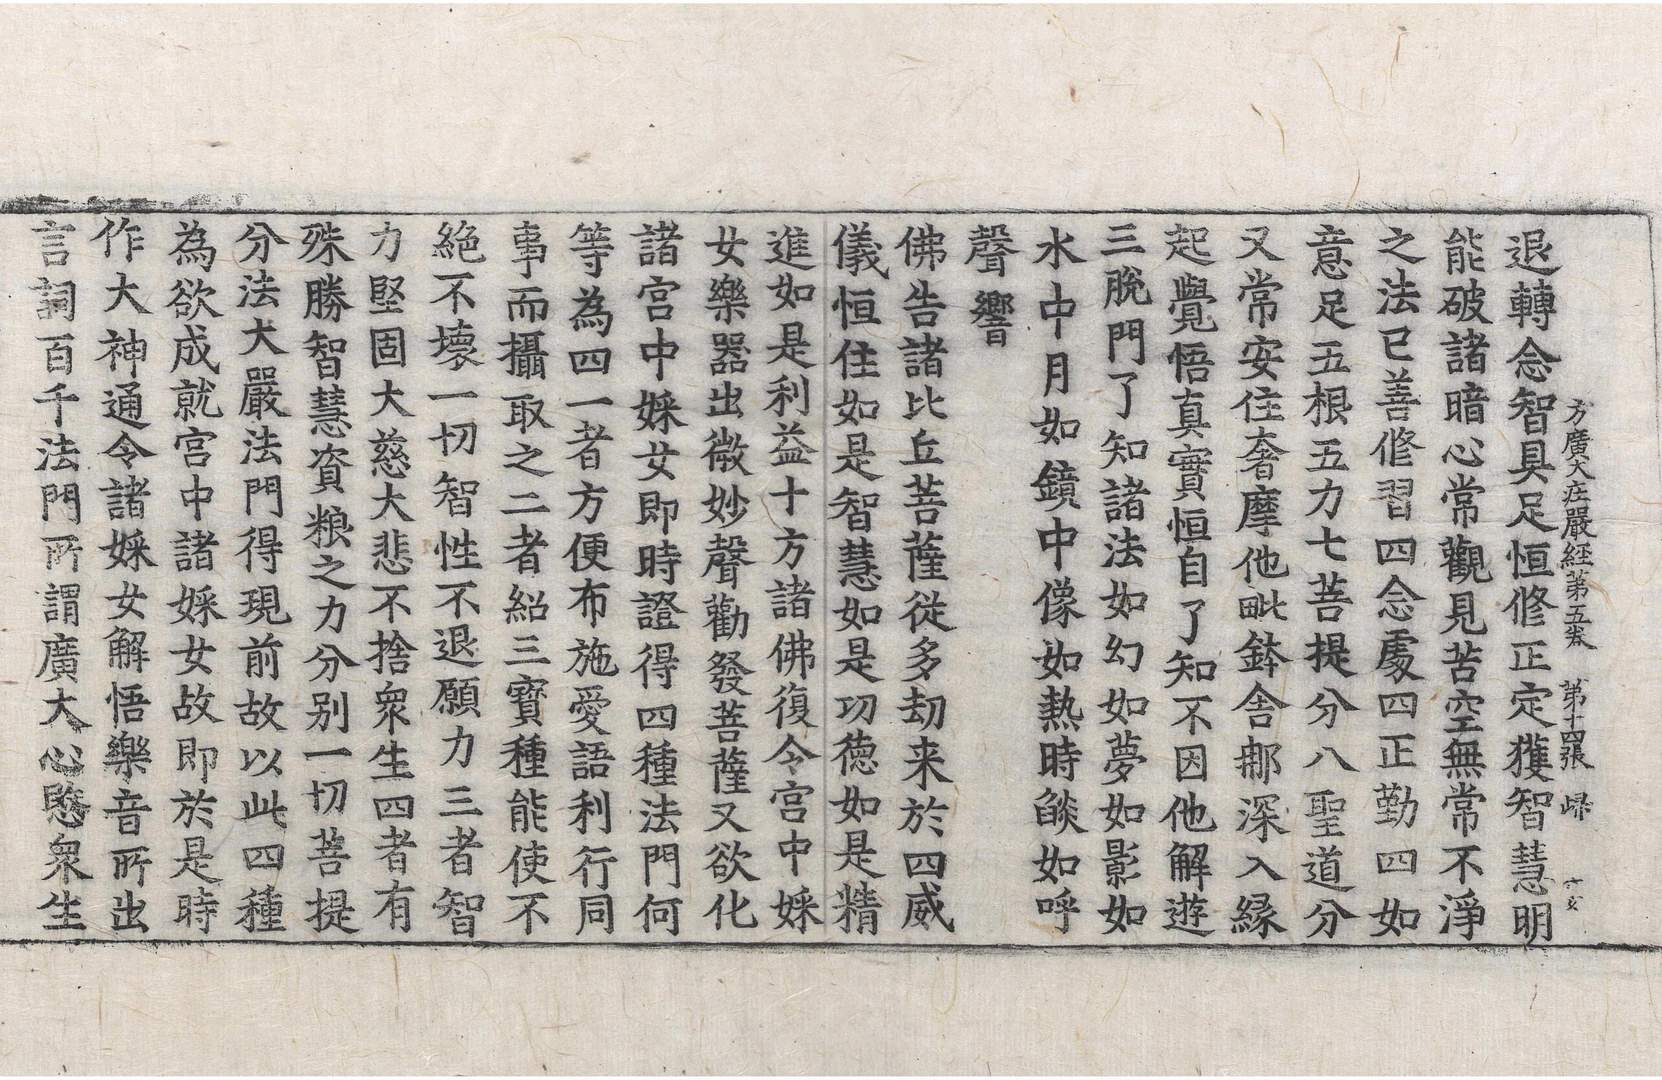 方廣大莊嚴經第五卷 第十四張 歸
退轉念智具足恒修正定獲智慧明
能破諸暗心常觀見苦空無常不淨
之法已善修習四念處四正勤四如
意足五根五力七菩提分八聖道分
又常安住奢摩他毗鉢舍那深入緣
起覺悟真實恒自了知不因他解遊
三脫門了知諸法如幻如夢如影如
水中月如鏡中像如熱時燄如呼
聲響
佛告諸比丘菩薩從多劫来於四威
儀恒住如是智慧如是功德如是精
進如是利益十方諸佛復令宮中婇
女樂器出微妙聲勸發菩薩又欲化
諸宮中婇女即時證得四種法門何
等為四一者方便布施愛語利行同
事而攝取之二者紹三寶種能使不
絕不壞一切智性不退願力三者智
力堅固大慈大悲不捨衆生四者有
殊勝智慧資粮之力分別一切菩提
分法大嚴法門得現前故以此四種
為欲成就宮中諸婇女故即於是時
作大神通令諸婇女解悟樂音所出
言詞百千法門所謂廣大心愍衆生